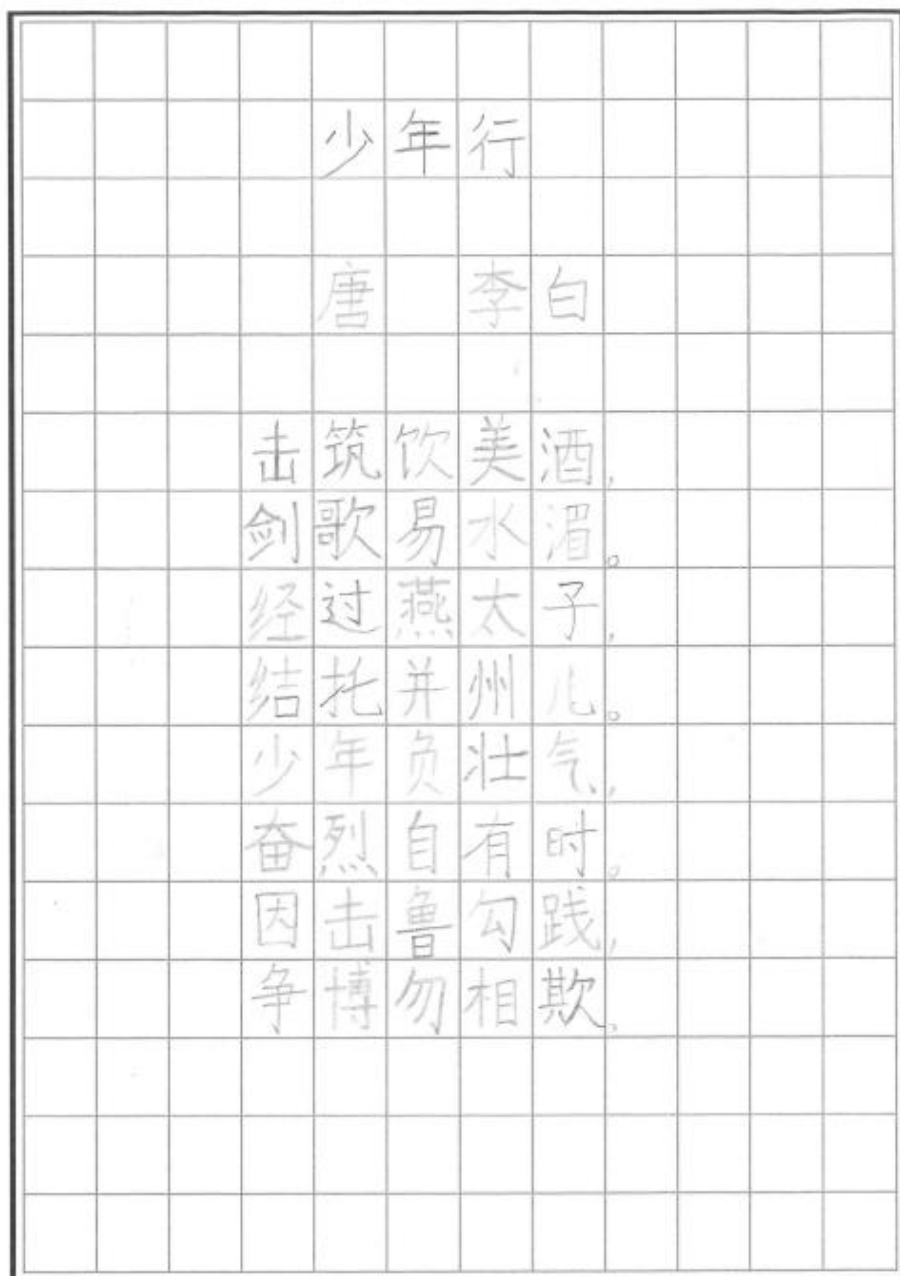 少年行
唐 李白
击筑饮美酒,
剑歌易水湄。
经过燕太子,
结托并州儿。
少年负壮气,
奋烈自有时。
因击鲁勾践,
争博勿相欺。